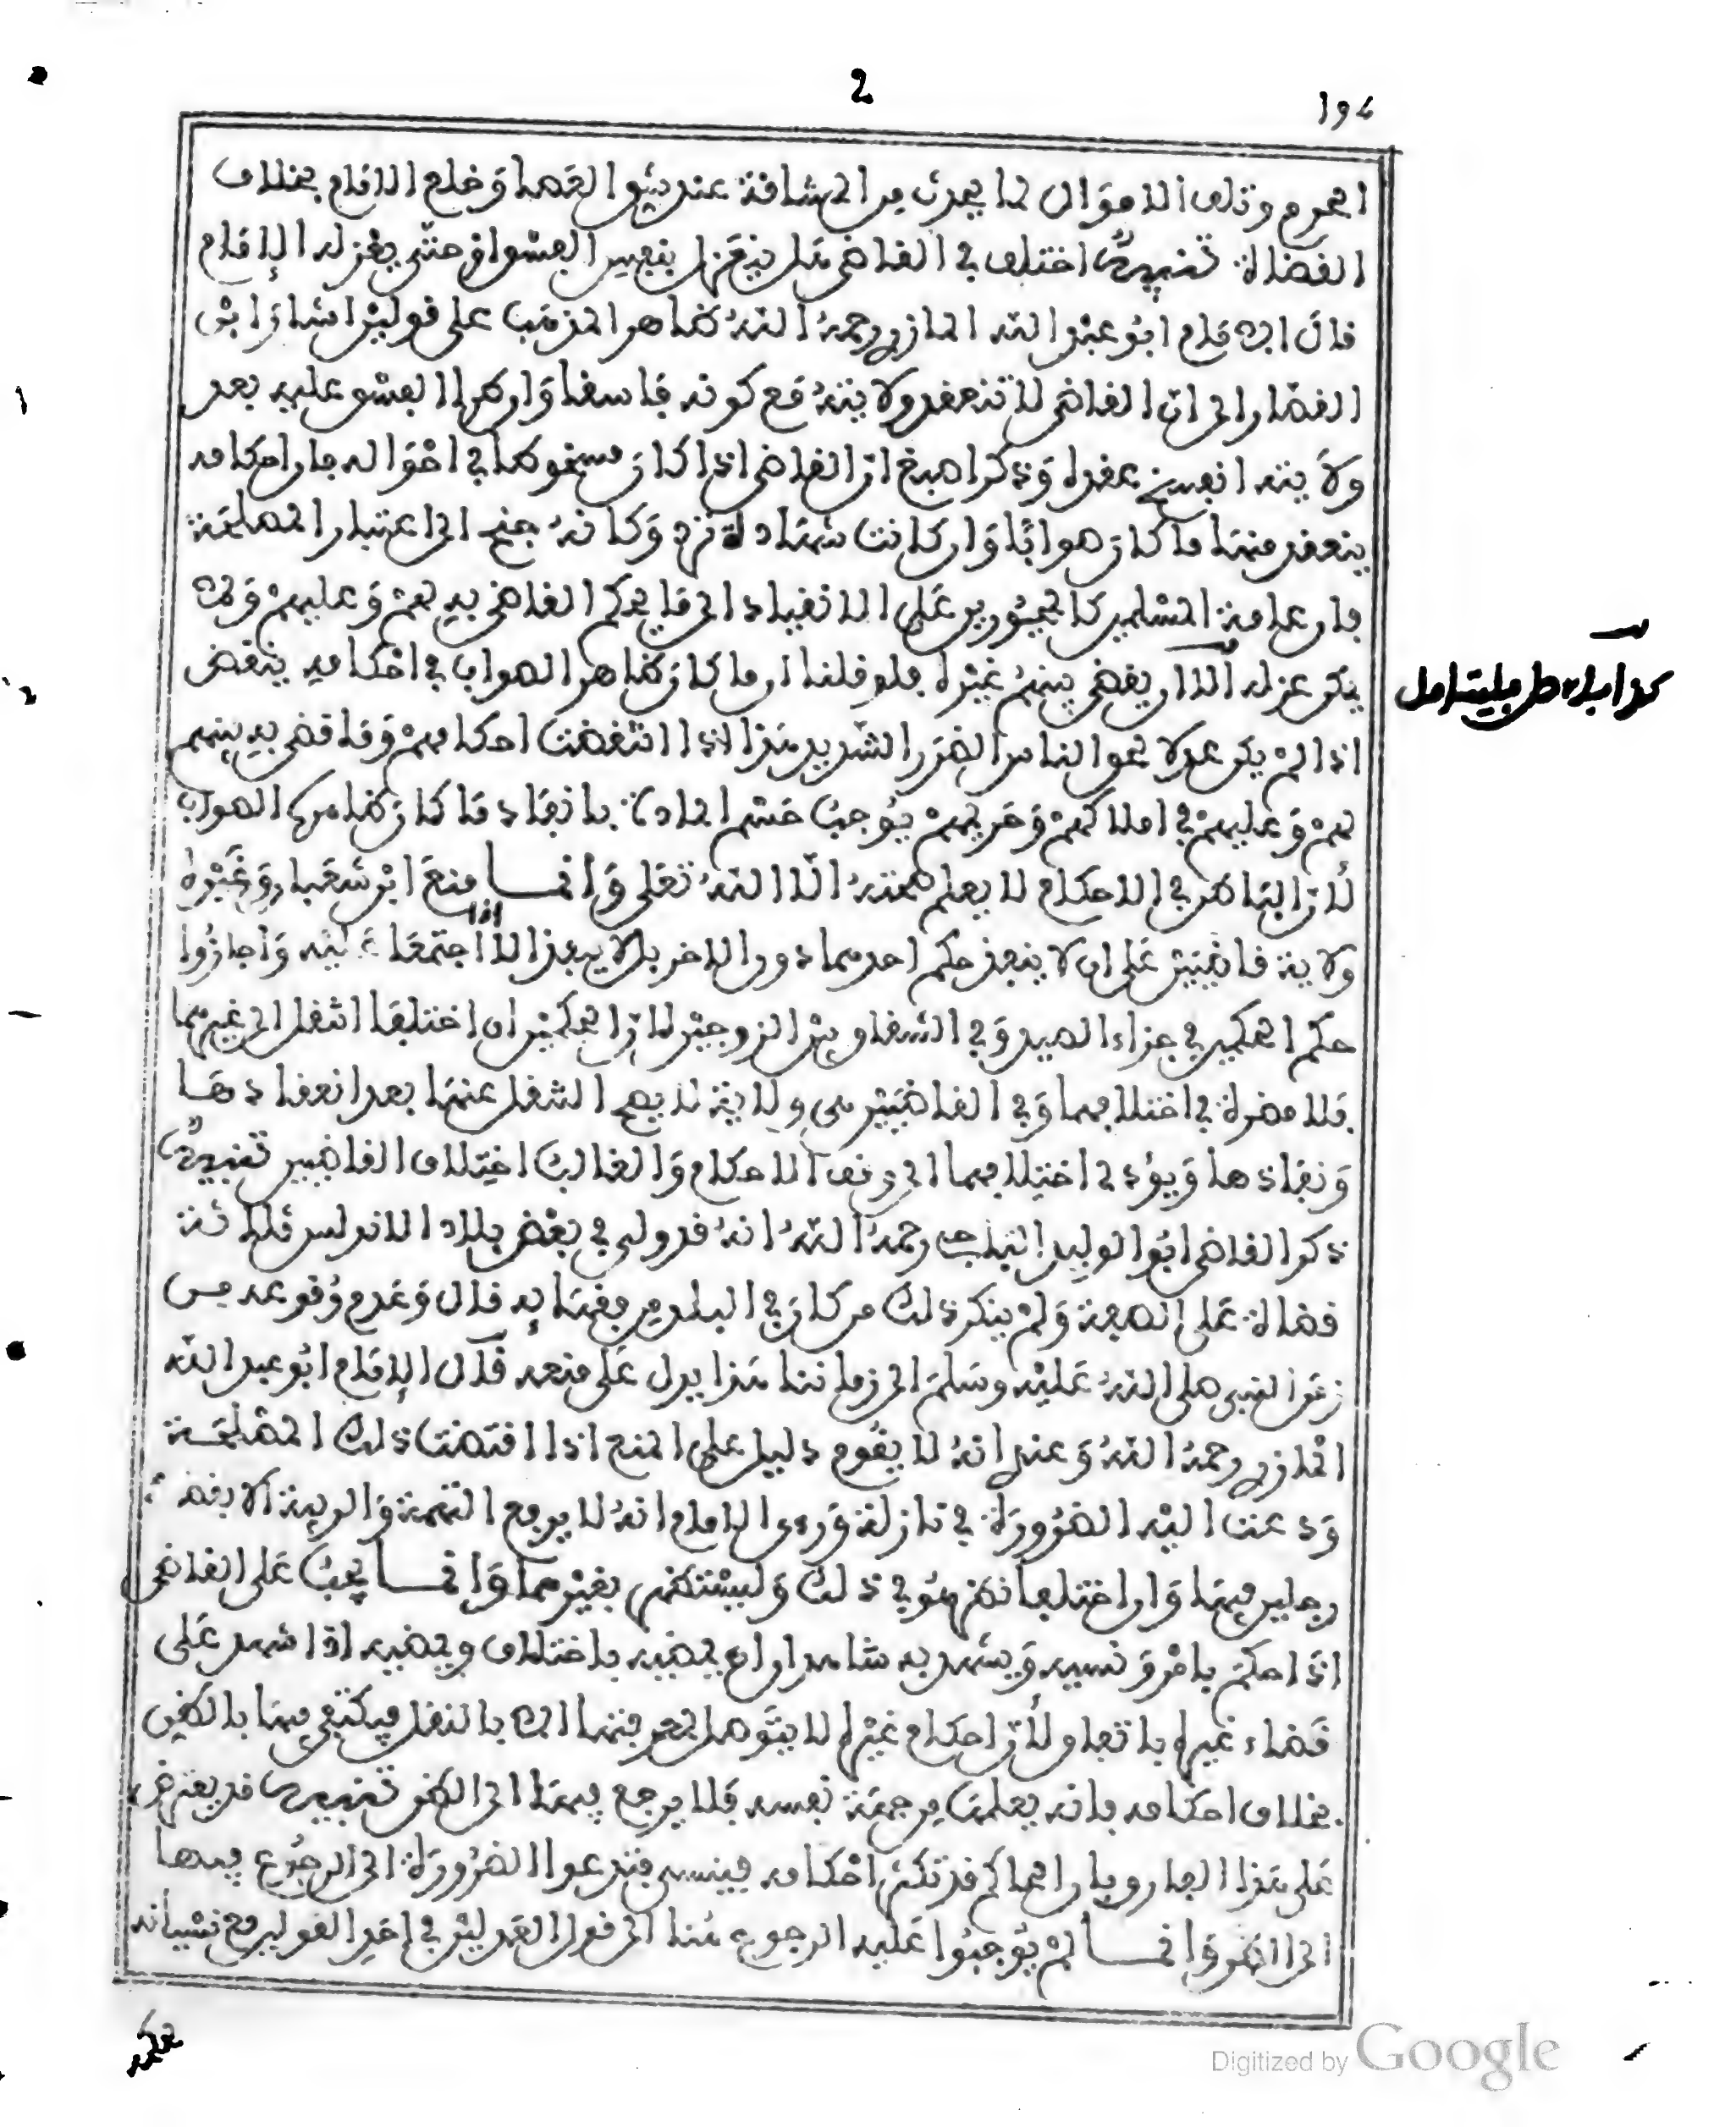 2
194
الحروم وتلف الاموال لما يحدث من المشاقة عند شق العصا وخلع الامام بخلاف
القضاة تنبيه اختلف في القاضي هل ينعزل بنفس الفسق او حتى يعزله الامام
قال الامام ابو عبد الله المازري رحمه الله ظاهر المذهب على قولين اشار ابن
القصار الى ان القاضي لا تنعقد ولايته مع كونه فاسقا وان طرا الفسق عليه بعد
ولايته انفسخ عقده وذكر اصبغ ان القاضي اذا كان مسخوطا في احواله فان احكامه
ينعقد منها ما كان صوابا وان كانت شهادته ترد وكانه جنح الى اعتبار المصلحة
فان عامة المسلمين كالمجبورين على الانقياد الى ما يحكم القاضي به لهم وعليهم ولم
يكن عزله الا ان يقضي بينهم غيره فلو قلنا ان ما كان ظاهر الصواب في احكامه ينقض
كذا فليتامل
اذا لم يكن عدلا لحق الناس الضرر الشديد هذا اذا انتقضت احكامهم وما قضى به بينهم
لهم وعليهم في املاكهم وحريمهم يوجب حسم المادة بانفاذ ما كان ظاهره الصواب
لان الباطن في الاحكام لا يعلم صحته الا الله تعلى وانما منع ابن شعبان وغيره
ولاية قاضيين على ان لا ينفذ حكم احدهما دون الاخر بل لا ينفذ الا اذا اجتمعا عليه واجازوا
حكم الحكمين في جزاء الصيد وفي الشقاق بين الزوجين لان الحكمين ان اختلفا انتقل الى غيرهما
فلا مضرة في اختلافهما وفي القاضيين هي ولاية لا يصح التنقل عنها بعد انعقادها
ونفاذها ويؤدي اختلافهما الى وقف الاحكام والغالب اختلاف القاضيين تنبيه
ذكر القاضي ابو الوليد الباجي رحمه الله انه قد ولي في بعض بلاد الاندلس ثلاثة
قضاة على الصفة ولم ينكر ذلك من كان في البلد من فقهائه قال وعدم وقوعه من
زمن النبي صلى الله عليه وسلم الى زماننا هذا يدل على منعه قال الامام ابو عبد الله
المازري رحمه الله وعندي انه لا يقوم دليل على المنع اذا اقتضت ذلك المصلحة
ودعت اليه الضرورة في نازلة ورءى الامام انه لا يرفع التهمة والريبة الا بقضاء
رجلين فيها وان اختلفا نظر هو في ذلك وليستظهر بغيرهما وانما يجب على القاضي
اذا حكم بامر ونسيه ويشهد به شاهدان ان يمضيه باختلاف ويمضيه اذا شهد على
قضاء غيره باتفاق لان احكام غيره لا يتوصل لمعرفتها الا بالنقل فيكتفي فيها بالظن
بخلاف احكامه فانه يعلمها من جهة نفسه فلا يرجع فيها الى الظن تنبيه قد يعترض
على هذا الفارق بان الحاكم قد تكثر احكامه فينسى فتدعوا الضرورة الى الرجوع فيها
الى الظن وانما لم يوجبوا عليه الرجوع هنا الى قول العدلين في احد القولين مع نسيانه